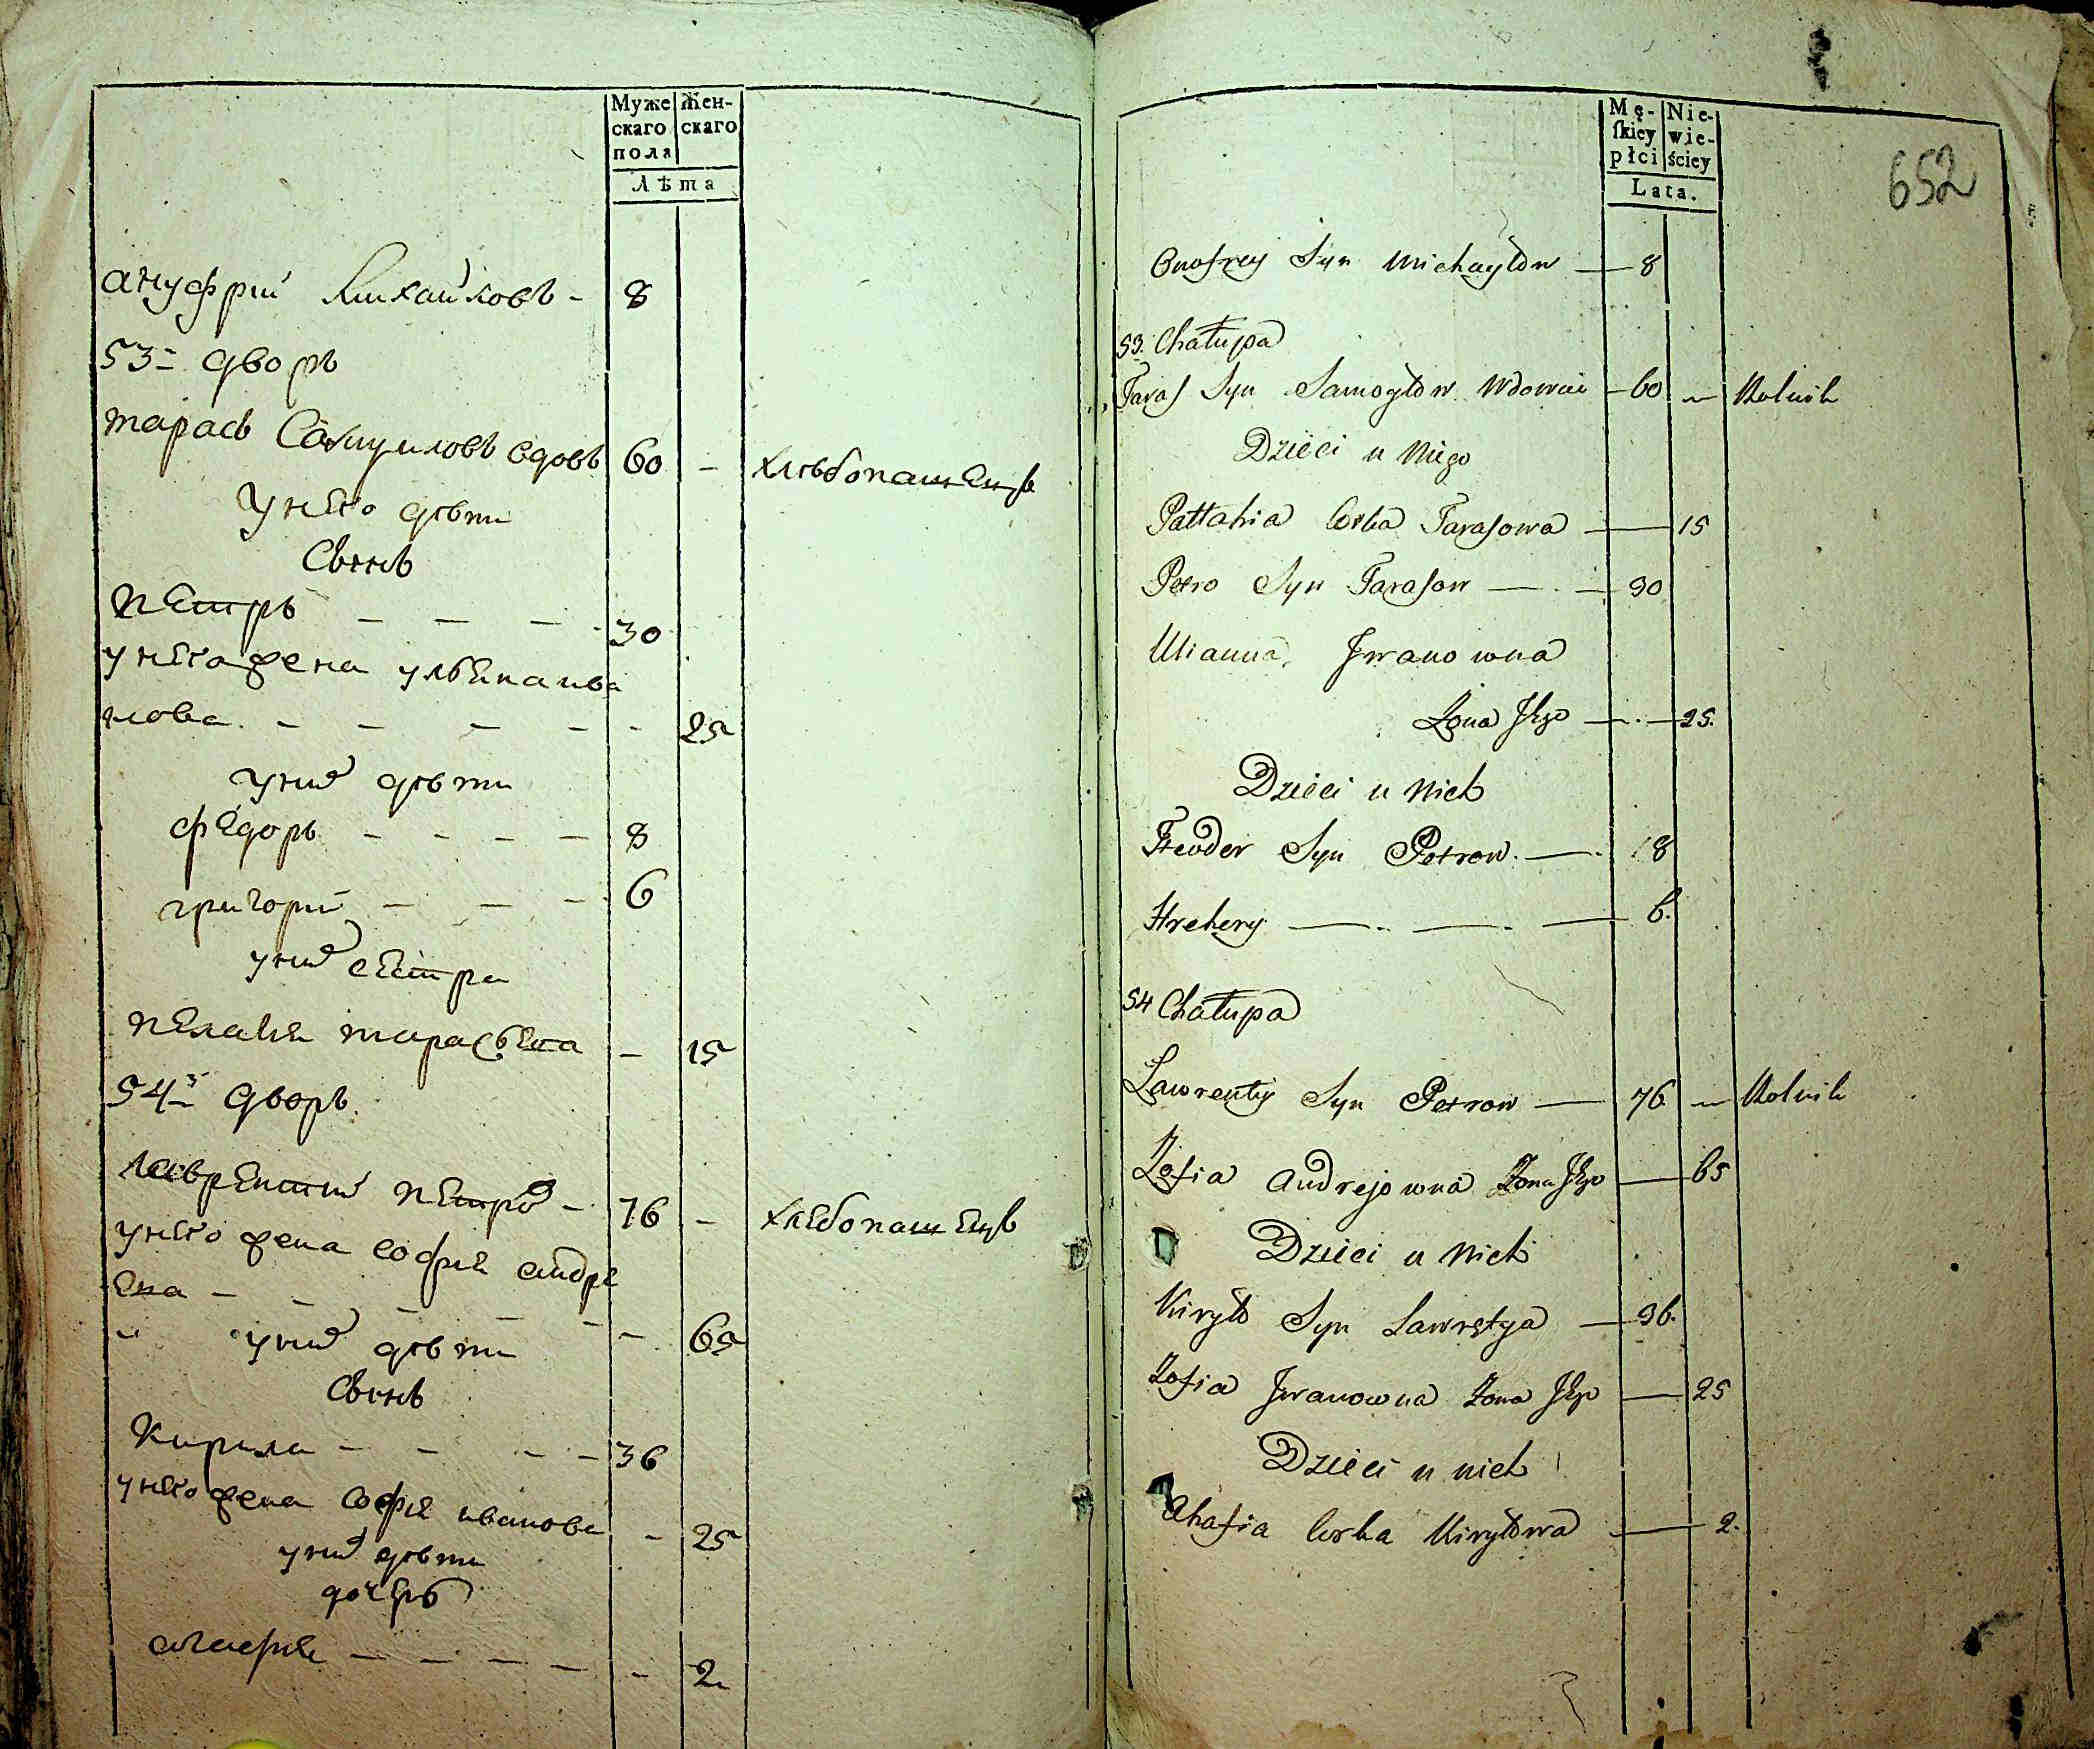 Муже
скаго
пола
Жен-
скаго
Лѣта
ануфрий Михайловъ - 8
53й дворъ
тарасъ Самуиловъ вдовъ 60 - хлѣбопашецъ
унево дѣти
Сынъ
пЕтръ - - - 30
унего жена ульЕна ива
нова - - - - - 25
унихъ дѣти
фЕдоръ - - - - 8
григорий - - - 6
унихъ сЕстра
пЕлагия тарасьЕва - 15
54й дворъ
лаврЕнтий пЕтровъ - 76 - хлЕбопашЕцъ
унево жена софия андрЕ
Ева - - - - - 65
унихъ дѣти
Сынъ
Кирила - - - - 36
унево жена София иванова - 25
унихъ дѣти
дочЕрь
агафия - - - - - 2
Mę-
ſkiey
płci
Nie-
wie-
ściey
Lata.
652
Onofrey Syn Michayłow — 8
53. Chałupa
Taras Syn Samoyłow Wdowiec — 60 — Rolnik
Dzieci u Niego
Pałłahia Corka Tarasowa — 15
Petro Syn Tarasow — . — 30
Ulianna Jwanowna
Żona Jego — . — 25.
Dzieci u Nich
Fteoder Syn Petrow. — . 8
Hrehery — . — . — 6.
54 Chałupa
Lawrentij Syn Petrow — 76 — Rolnik
Zofia Andrejowna Żona Jego — 65
Dzieci u Nich
Kiryło Syn Lawrętya — 36.
Zofia Jwanowna Żona Jego — 25
Dzieci u nich
Ahafia Corka Kiryłowa — 2.